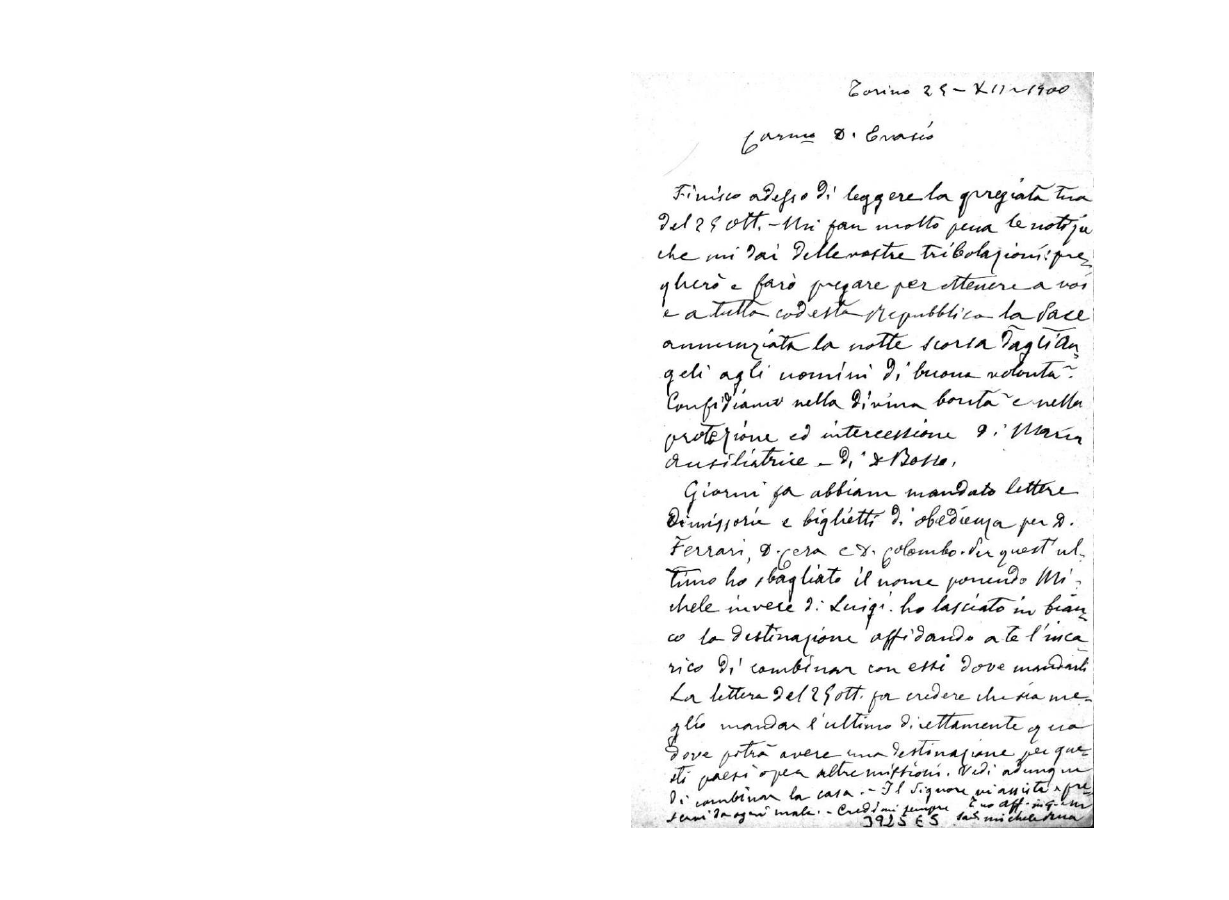 Torino 25-XII-1900
Carmo D. Evasio
Finisco adesso di leggere la pregiata tua
del 25 ott. - Mi fan molto pena le notizie
che mi dai delle vostre tribolazioni: pre-
gherò e farò pregare per ottenere a voi
e a tutta codesta Repubblica la Pace
annunziata la notte scorsa dagli An-
geli agli uomini di buona volontà.
Confidiamo nella divina bontà e nella
protezione ed intercessione di Maria
Ausiliatrice - di D Bosco.
Giorni fa abbiam mandato lettere
dimissorie e biglietti di obedienza per D.
Ferrari, D. Cera e D. Colombo. Per quest'ul-
timo ho sbagliato il nome ponendo Mi-
chele invece di Luigi. ho lasciato in bian-
co la destinazione affidando a te l'inca-
rico di combinar con essi dove mandarli
La lettera del 25 ott. fa credere che sia me-
glio mandar l'ultimo direttamente qua
dove potrà avere una destinazione per que-
sti paesi o per altre missioni. Vedi adunque
di combinar la cosa. - Il Signore vi assista e pre-
servi da ogni male. - Credimi sempre Tuo aff. in G. e M.
3925 E5 Sac. Michele Rua